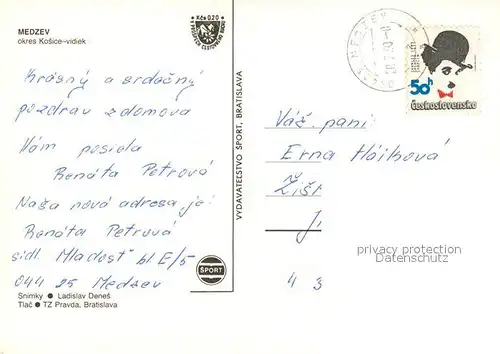 MEDZEV
okres Košice-vidiek
Kčs 0,20
Krásny a srdečný
pozdrav z domova
Vám posiela
Renáta Petrová
Naša nová adresa je:
Renáta Petrová
sídl. Mladosť bl. E/5
044 25 Medzev
Snímky ● Ladislav Deneš
Tlač ● TZ Pravda, Bratislava
VYDAVATEĽSTVO ŠPORT, BRATISLAVA
ŠPORT
MEDZEV
50h
Československo
Váž. pani
Erna Háiková
Žiši
J
4 3
privacy protection
DelCampe.net